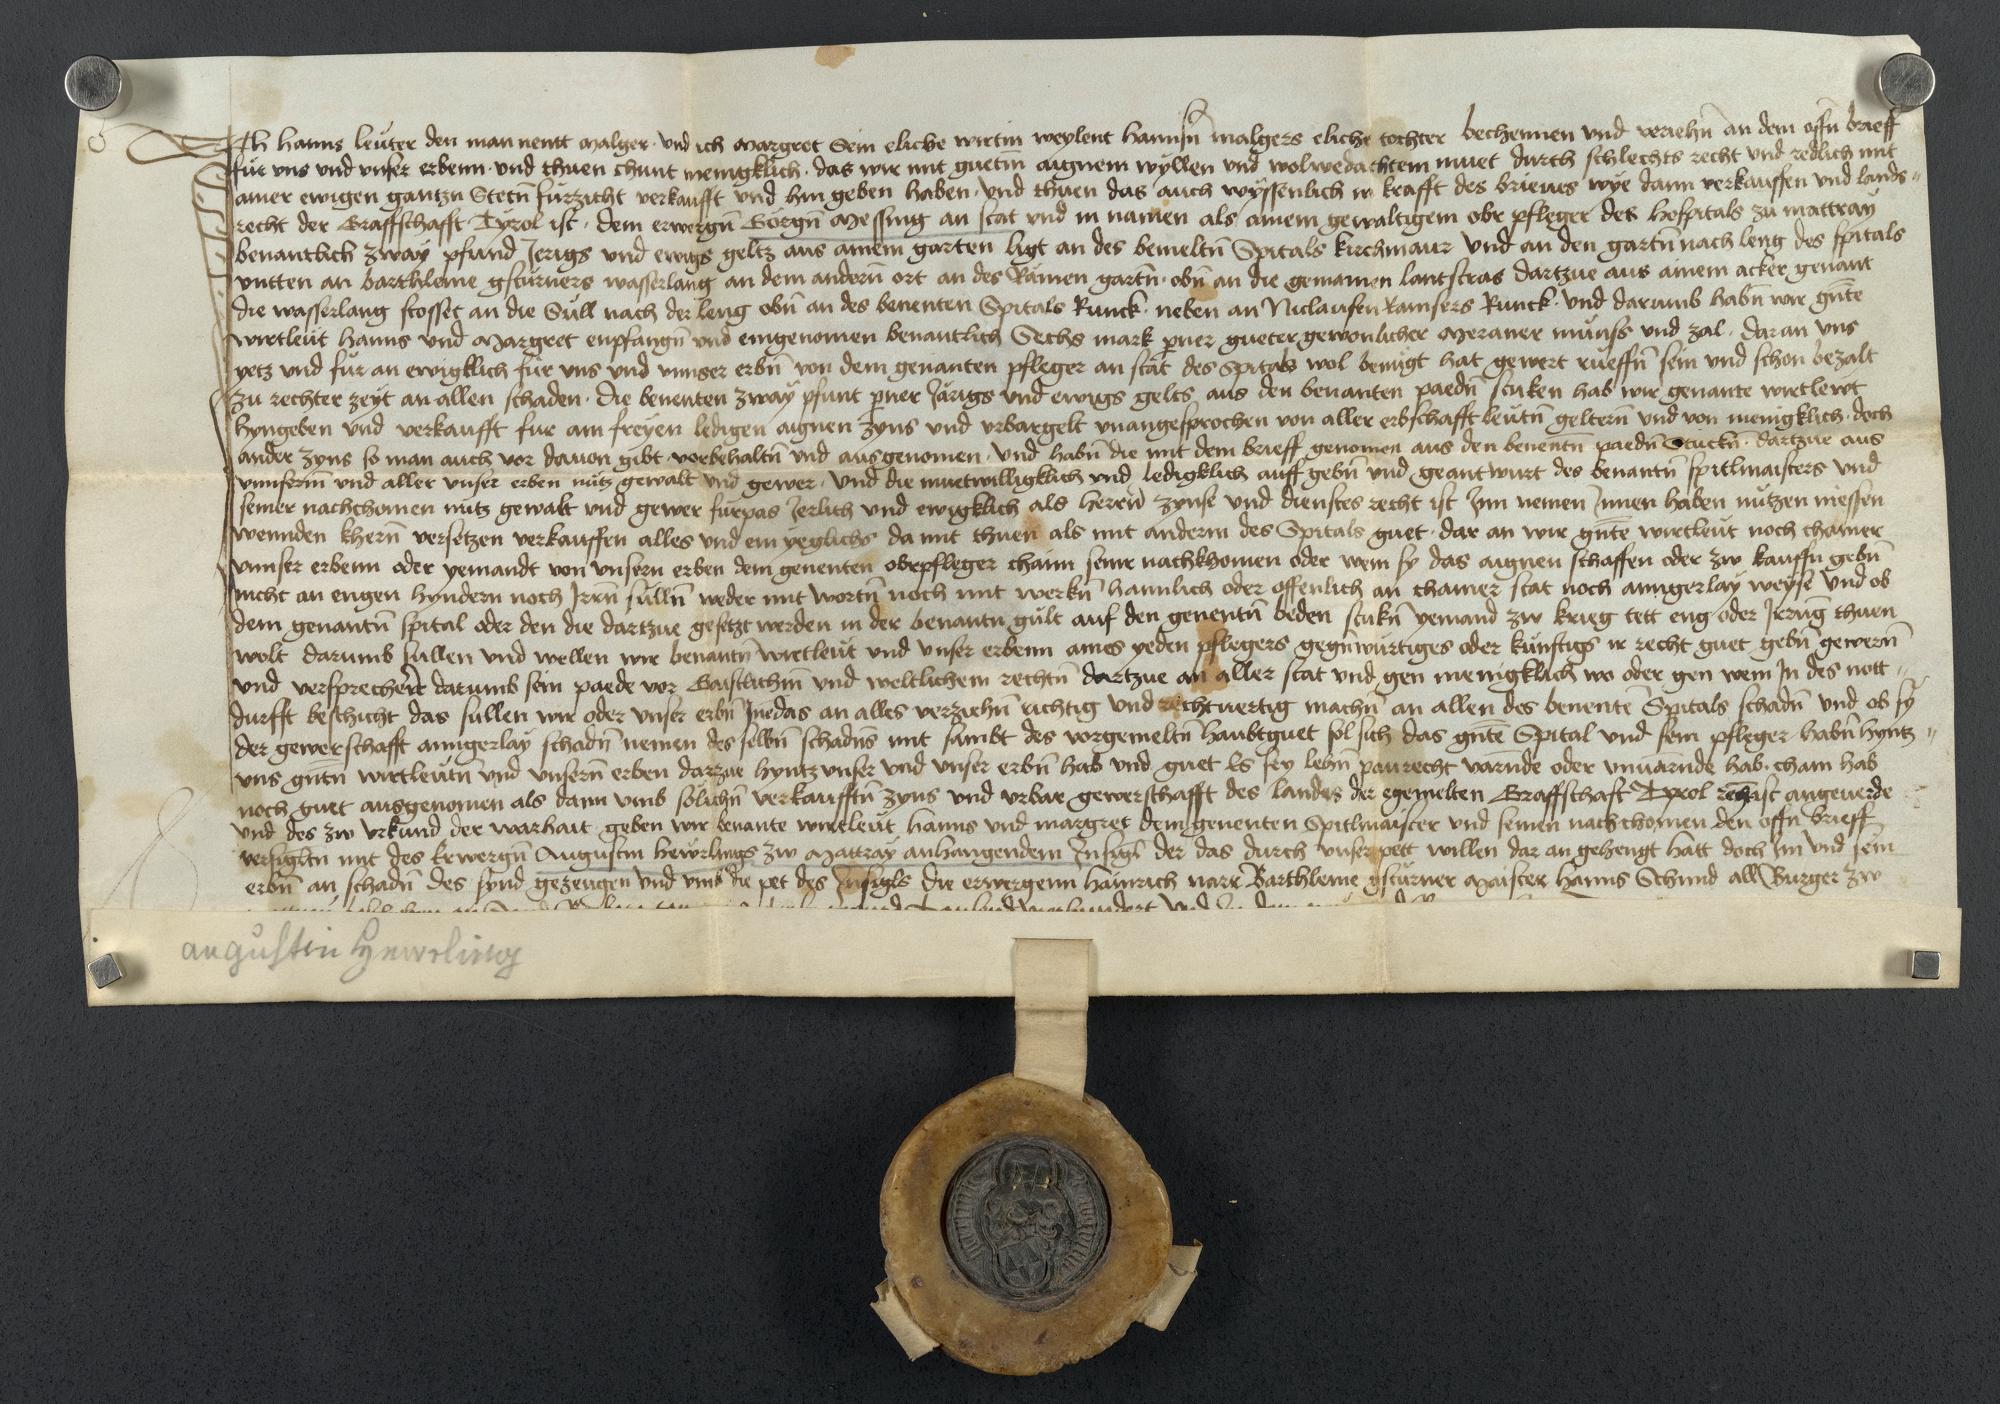 Ich Hanns leuter den man nentt Malger und ich Margret Sein eliche wirtin weylent Hannsn malgers eliche tochter bechennen und veriehn an dem offn brieff
für uns und unser erbenn und thuen chunt menigklich das wir mit guetm aignem wyllen und wolwedachtem muet durch schlechts recht und redlich mit
ainer ewigen gantzn Stetn fürzicht verkaufft und hin geben haben und thuen das auch wyssenlich in krafft des brieves wye dann verkauffen und lands
recht der Graffschafft Tyrol ist dem erwergn Görgn Messing an stat und in namen als ainem gewaltigem obr pfleger des hospitals zu mattray
benantlich zway pfund Jerigs und ewigs geltz aus ainem garten ligt an des bemeltn Spitals kirchmaur und an den gartn nach leng des spitals
untten an barthleme gsturners wasserlang an dem andern ort an des Ramen gartn obn an die gemainen lantstras dartzue aus ainem acker genant
die wasserlang stosset an die Süll nach der leng obn an des benenten Spitals Runck neben an Niclausen Ramsers Runck und darumb habn wir gnte
wirtleut Hanns und Margret enpfangn und eingenomen benantlich Sechs mark perner gueter gewonlicher Meraner münss und zal daran uns
yetz und für an ewigklich für uns und unnser erbn von dem genanten pfleger an stat des Spitals wol benügt hat gewert rueffn sein und schon bezalt
zu rechter zeyt an allen schaden die benenten zway pfunt perner Järigs und ewigs gelts aus den benanten paedn stuken hab wir genante wirtlewt
hyngeben und verkaufft fur ain freyen ledigen aignen zyns und urbargelt unangesprochen von aller erbschafft leutn geltern und von menigklich doch
ander zyns so man auch vor davon gibt vorbehaltn und ausgenomen und habn die mit dem brieff genomen aus den benentn paedn Stuckn dartzue aus
unnserm und aller unser erben nutz gewalt und gewer und die muetwilligklich und ledigklich auff gebn und geantwurt des benantn spitlmaisters und
seiner nachchomen nutz gewalt und gewer fürpas Jerlich und ewigklich als herrn zynse und dienstes recht ist Inn nemen Innen haben nutzen niessen
wennden khern versetzen verkauffen alles und ein yeglichs da mit thuen als mit anderm des Spitals guet dar an wir gnte wirtleut noch chainer
unnser erbenn oder yemandt von unsern erben dem genenten obrpfleger chainn seinr nachkhomen oder wem sy das aignen schaffen oder zw kauffn gebn
nicht an engen hyndern noch Irrn sulln weder mit wortn noch mit werkn haimlich oder offenlich an chainer stat noch ainigerlay weyse und ob
dem genantn spital oder den die dartzue gesetzt werden in der benantn gült auf den genentn beden stukn yemand zw krieg tett eng oder Irrung thuen
wolt darumb sullen und wellen wir benantn wirtleut und unser erbenn aines yeden pflegers gegnwürtiges oder kunftigs ir recht guet gebn gewern
und versprecher darumb sein paede vor Gaistlichm und weltlichem rechtn dartzue an aller stat und gen menigklich wo oder gen wem In des nott
durfft beschicht das sullen wir oder unser erbn Inedas an alles verziehn richtig und rechtvertig machn an allen des benente Spitals schadn und ob sy
der gewerschafft ainigerlay schadn nemen des selbn schadns mit sambt des vorgemeltn haubtguet sol sich das gnte Spital und sein pfleger habn hyntz
uns gntn wirtleutn und unsern erben dartzue hyntz unser und unser erbn hab und guet Es sey lehn paurecht varnde oder unvarnde hab chain hab
noch guet ausgenomen als dann umb solichn verkaufftn zyns und urbar gewerschafft des landes der egemelten Graffschaft Tyrol recht ist angeverde
und des zw urkund der warhait geben wir benante wirtleut Hanns und margret dem genenten Spitlmaister und seinen nachchomen den offn brieff
versigltn mit des Erwergn Augustin hewrlings zw Mattray anhangendem Insigl der das durch unser pett willen dar an gehengt hatt doch Im und sein
erbn an schadn des synd gezeugen und umb die pet des Insigls die erwergenn Hainrich narr Barthleme gsturner Maister Hanns Schmid all Burger zw
augustin Hewrling